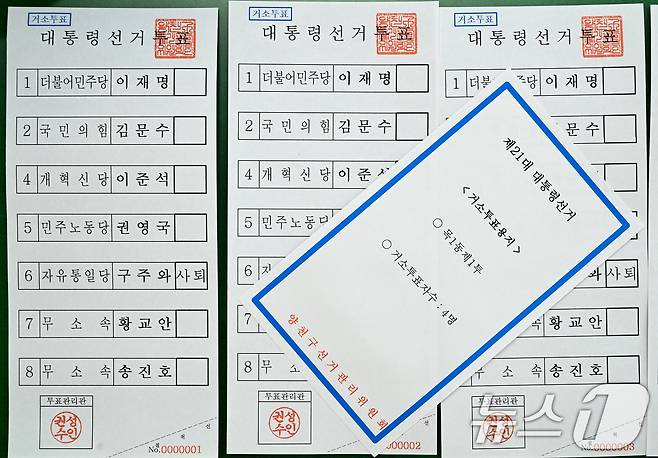 거소투표
대통령선거투표
1 더불어민주당 이재명
2 국민의힘 김문수
4 개혁신당 이준석
5 민주노동당 권영국
6 자유통일당 구주와 사퇴
7 무소속 황교안
8 무소속 송진호
투표관리관
권성수인
No.0000001
거소투표
대통령선거투표
1 더불어민주당 이재명
2 국민의힘 김문수
4 개혁신당 이준석
5 민주노동당
6
7 무
8 무소
투표관리관
0002
거소투표
대통령선거투표
1 더불어민주당 이재명
문수
사퇴
No.0000003
제21대 대통령선거
< 거소투표용지 >
○ 목1동제1투
○ 거소투표자수 : 4명
양천구선거관리위원회
뉴스1